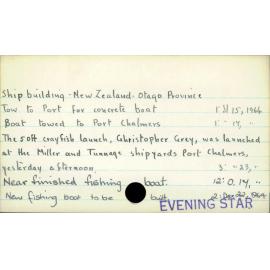 Ship building - New Zealand - Otago Province
Tow to Port for concrete boat 1 Jl 15, 1964
Boat towed to Port Chalmers 1: " 17, "
The 50ft crayfish launch, Christopher Grey, was launched
at the Miller and Tunnage shipyards Port Chalmers,
yesterday afternoon 3: " 23, "
Near finished fishing boat. 12: O. 14, "
New fishing boat to be built 2: Dec 22, 1964
EVENING STAR